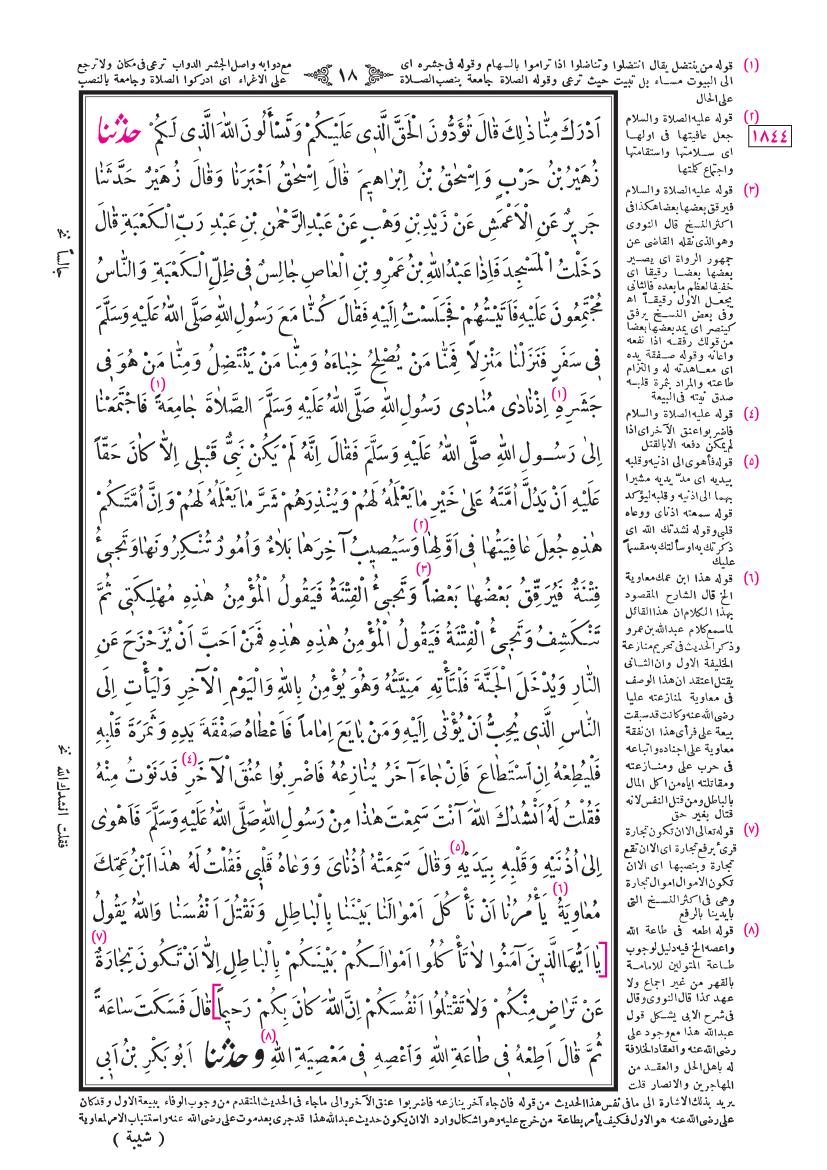 (١) قوله من ينتضل يقال انتضلوا وتناضلوا اذا تراموا بالسهام وقوله فى جشره اى
الى البيوت مساء بل تبيت حيث ترعى وقوله الصلاة جامعة بنصب الصلاة
١٨
مع دوابه واصل الجشر الدواب ترعى فى مكان ولا ترجع
على الاغراء اى ادركوا الصلاة وجامعة بالنصب
على الحال
اَدْرَكَ مِنَّا ذٰلِكَ قَالَ تُؤَدُّونَ الْحَقَّ الَّذى عَلَيْكُمْ وَتَسْأَلُونَ اللّٰهَ الَّذى لَكُمْ حدثنا
زُهَيْرُ بْنُ حَرْبٍ وَاِسْحٰقُ بْنُ اِبْراهِيمَ قَالَ اِسْحٰقُ اَخْبَرَنَا وَقَالَ زُهَيْرٌ حَدَّثَنَا
جَريرٌ عَنِ الْاَعْمَشِ عَنْ زَيْدِ بْنِ وَهْبٍ عَنْ عَبْدِ الرَّحْمٰنِ بْنِ عَبْدِ رَبِّ الْكَعْبَةِ قَالَ
دَخَلْتُ الْمَسْجِدَ فَاِذَا عَبْدُ اللّٰهِ بْنُ عَمْرِو بْنِ الْعَاصِ جَالِسٌ فى ظِلِّ الْكَعْبَةِ وَالنَّاسُ
مُجْتَمِعُونَ عَلَيْهِ فَاَتَيْتُهُمْ فَجَلَسْتُ اِلَيْهِ فَقَالَ كُنَّا مَعَ رَسُولِ اللّٰهِ صَلَّى اللّٰهُ عَلَيْهِ وَسَلَّمَ
فى سَفَرٍ فَنَزَلْنَا مَنْزِلاً فَمِنَّا مَنْ يُصْلِحُ خِبَاءَهُ وَمِنَّا مَنْ يَنْتَضِلُ وَمِنَّا مَنْ هُوَ فى
جَشَرِهِ (١) اِذْ نَادى مُنَادى رَسُولِ اللّٰهِ صَلَّى اللّٰهُ عَلَيْهِ وَسَلَّمَ الصَّلاَةَ جَامِعَةً (١) فَاجْتَمَعْنَا
اِلى رَسُولِ اللّٰهِ صَلَّى اللّٰهُ عَلَيْهِ وَسَلَّمَ فَقَالَ اِنَّهُ لَمْ يَكُنْ نَبِىٌّ قَبْلى اِلاَّ كَانَ حَقّاً
عَلَيْهِ اَنْ يَدُلَّ اُمَّتَهُ عَلى خَيْرِ مَا يَعْلَمُهُ لَهُمْ وَيُنْذِرَهُمْ شَرَّ مَا يَعْلَمُهُ لَهُمْ وَاِنَّ اُمَّتَكُمْ
هٰذِهِ جُعِلَ عَافِيَتُهَا فى اَوَّلِهَا (٢) وَسَيُصيبُ آخِرَهَا بَلاَءٌ وَاُمُورٌ تُنْكِرُونَهَا وَتَجِئُ
فِتْنَةٌ فَيُرَقِّقُ بَعْضُهَا بَعْضاً (٣) وَتَجِئُ الْفِتْنَةُ فَيَقُولُ الْمُؤْمِنُ هٰذِهِ مُهْلِكَتى ثُمَّ
تَنْكَشِفُ وَتَجِئُ الْفِتْنَةُ فَيَقُولُ الْمُؤْمِنُ هٰذِهِ هٰذِهِ فَمَنْ اَحَبَّ اَنْ يُزَحْزَحَ عَنِ
النَّارِ وَيُدْخَلَ الْجَنَّةَ فَلْتَأْتِهِ مَنِيَّتُهُ وَهُوَ يُؤْمِنُ بِاللّٰهِ وَالْيَوْمِ الْآخِرِ وَلْيَأْتِ اِلَى
النَّاسِ الَّذى يُحِبُّ اَنْ يُؤْتى اِلَيْهِ وَمَنْ بَايَعَ اِمَاماً فَاَعْطَاهُ صَفْقَةَ يَدِهِ وَثَمَرَةَ قَلْبِهِ
فَلْيُطِعْهُ اِنِ اسْتَطَاعَ فَاِنْ جَاءَ آخَرُ يُنَازِعُهُ فَاضْرِبُوا عُنُقَ الْآخَرِ (٤) فَدَنَوْتُ مِنْهُ
فَقُلْتُ لَهُ اَنْشُدُكَ اللّٰهَ آنْتَ سَمِعْتَ هٰذَا مِنْ رَسُولِ اللّٰهِ صَلَّى اللّٰهُ عَلَيْهِ وَسَلَّمَ فَاَهْوى
اِلى اُذُنَيْهِ وَقَلْبِهِ بِيَدَيْهِ (٥) وَقَالَ سَمِعَتْهُ اُذُنَاىَ وَوَعَاهُ قَلْبى فَقُلْتُ لَهُ هٰذَا ابْنُ عَمِّكَ
مُعَاوِيَةُ (٦) يَأْمُرُنَا اَنْ نَأْكُلَ اَمْوَالَنَا بَيْنَنَا بِالْبَاطِلِ وَنَقْتُلَ اَنْفُسَنَا وَاللّٰهُ يَقُولُ
[يَا اَيُّهَا الَّذينَ آمَنُوا لاَ تَأْكُلُوا اَمْوَالَكُمْ بَيْنَكُمْ بِالْبَاطِلِ اِلاَّ اَنْ تَكُونَ تِجَارَةً (٧)
عَنْ تَرَاضٍ مِنْكُمْ وَلاَ تَقْتُلُوا اَنْفُسَكُمْ اِنَّ اللّٰهَ كَانَ بِكُمْ رَحيماً] قَالَ فَسَكَتَ سَاعَةً
ثُمَّ قَالَ اَطِعْهُ فى طَاعَةِ اللّٰهِ وَاعْصِهِ فى مَعْصِيَةِ اللّٰهِ (٨) وحدثنا اَبُو بَكْرِ بْنُ اَبى
(٢) قوله عليه الصلاة والسلام
جعل عافيتها فى اولها
اى سلامتها واستقامتها
واجتماع كلمتها
١٨٤٤
(٣) قوله عليه الصلاة والسلام
فيرقق بعضها بعضا هكذا فى
اكثر النسخ قال النووى
وهو الذى نقله القاضى عن
جمهور الرواة اى يصير
بعضها بعضا رقيقا اى
خفيفا لعظم ما بعده فالثانى
يجعل الاول رقيقا اه
وفى بعض النسخ يرفق
كينصر اى يمد بعضها بعضا
من قولك رفقه اذا نفعه
واعانه وقوله صفقة يده
اى معاهدته له والتزام
طاعته والمراد بثمرة قلبه
صدق نيته فى البيعة
(٤) قوله عليه الصلاة والسلام
فاضربوا عنق الآخر اى اذا
لم يمكن دفعه الا بالقتل
(٥) قوله فأهوى الى اذنيه وقلبه
بيديه اى مدّ يديه مشيرا
بهما الى اذنيه وقلبه ليؤكد
قوله سمعته اذناى ووعاه
قلبى وقوله نشدتك الله اى
ذكرتك به او سألتك به مقسماً
عليك
(٦) قوله هذا ابن عمك معاوية
الخ قال الشارح المقصود
بهذا الكلام ان هذا القائل
لما سمع كلام عبدالله بن عمرو
وذكر الحديث فى تحريم منازعة
الخليفة الاول وان الثانى
يقتل اعتقد ان هذا الوصف
فى معاوية لمنازعته عليا
رضى الله عنه وكانت قد سبقت
بيعة على فرأى هذا ان نفقة
معاوية على اجناده واتباعه
فى حرب على ومنازعته
ومقاتلته اياه من اكل المال
بالباطل ومن قتل النفس لانه
قتال بغير حق
(٧) قوله تعالى الا ان تكون تجارة
قرئ برفع تجارة اى الا ان تقع
تجارة وبنصبها اى الا ان
تكون الاموال اموال تجارة
وهى فى اكثر النسخ التى
بايدينا بالرفع
(٨) قوله اطعه فى طاعة الله
واعصه الخ فيه دليل لوجوب
طاعة المتولين للامامة
بالقهر من غير اجماع ولا
عهد كذا قال النووى وقال
فى شرح الابى يشكل قول
عبدالله هذا مع وجود على
رضى الله عنه وانعقاد الخلافة
له باهل الحل والعقد من
المهاجرين والانصار قلت
يريد بذلك الاشارة الى ما فى نفس هذا الحديث من قوله فان جاء آخر ينازعه فاضربوا عنق الآخر والى ما جاء فى الحديث المتقدم من وجوب الوفاء ببيعة الاول وقد كان
على رضى الله عنه هو الاول فكيف يأمر بطاعة من خرج عليه وهو اشكال وارد الا ان يكون حديث عبدالله هذا قد جرى بعد موت على رضى الله عنه واستتباب الامر لمعاوية
( شيبة )
جالساً نخ
فقلت انشدك الله نخ